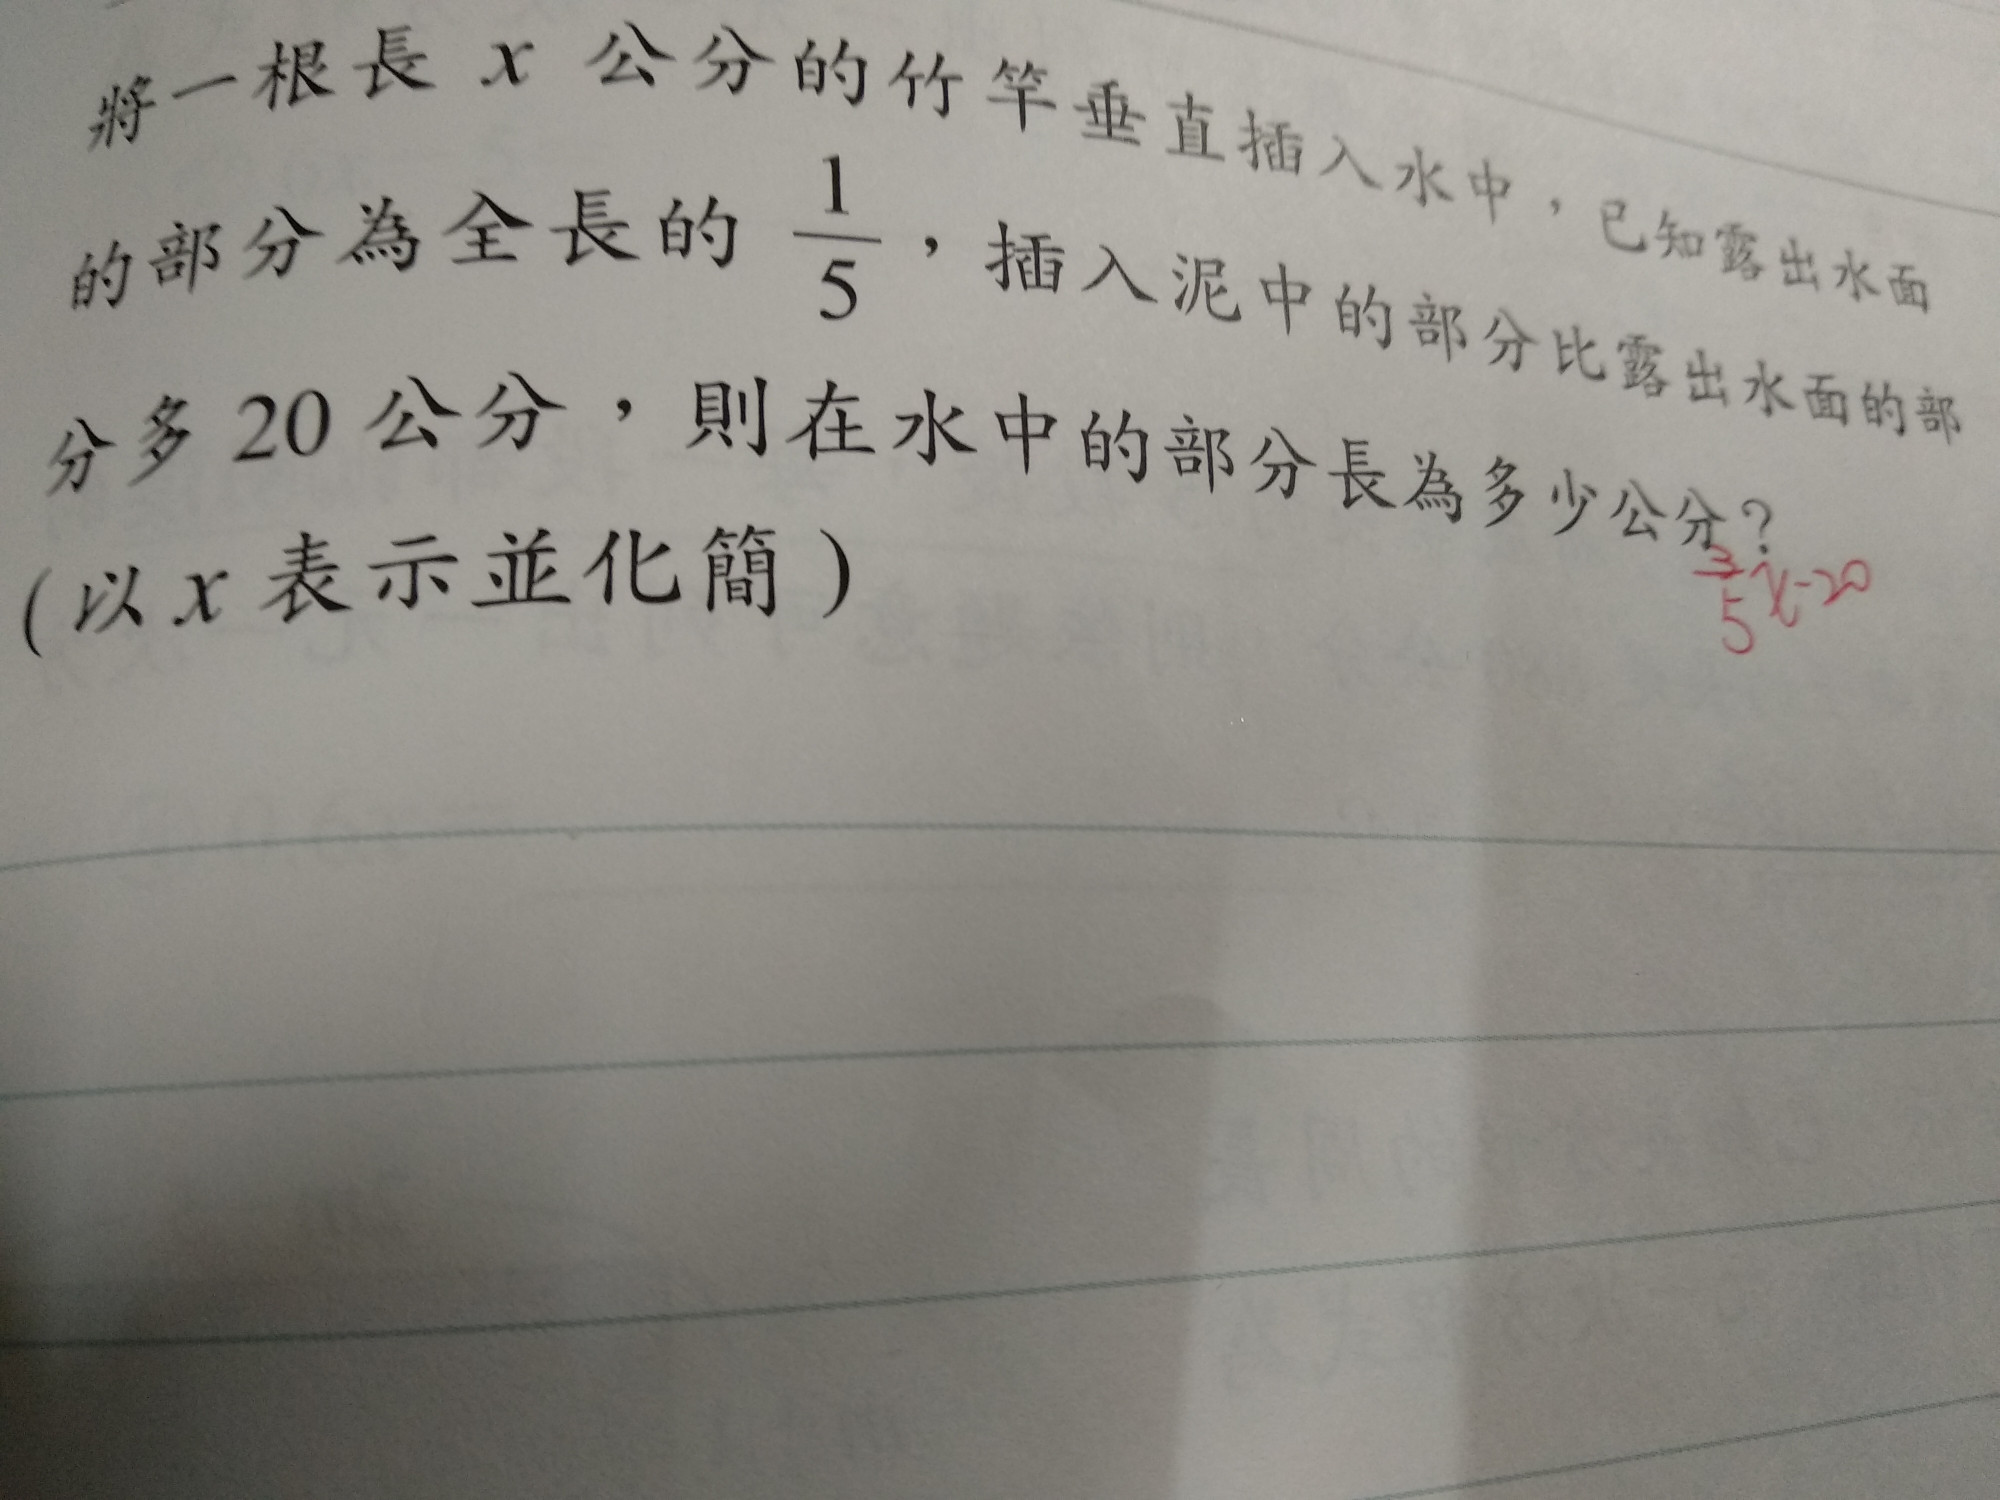 將一根長 x 公分的竹竿垂直插入水中，已知露出水面
的部分為全長的 1/5，插入泥中的部分比露出水面的部
分多 20 公分，則在水中的部分長為多少公分？
(以 x 表示並化簡)
3/5 x-20